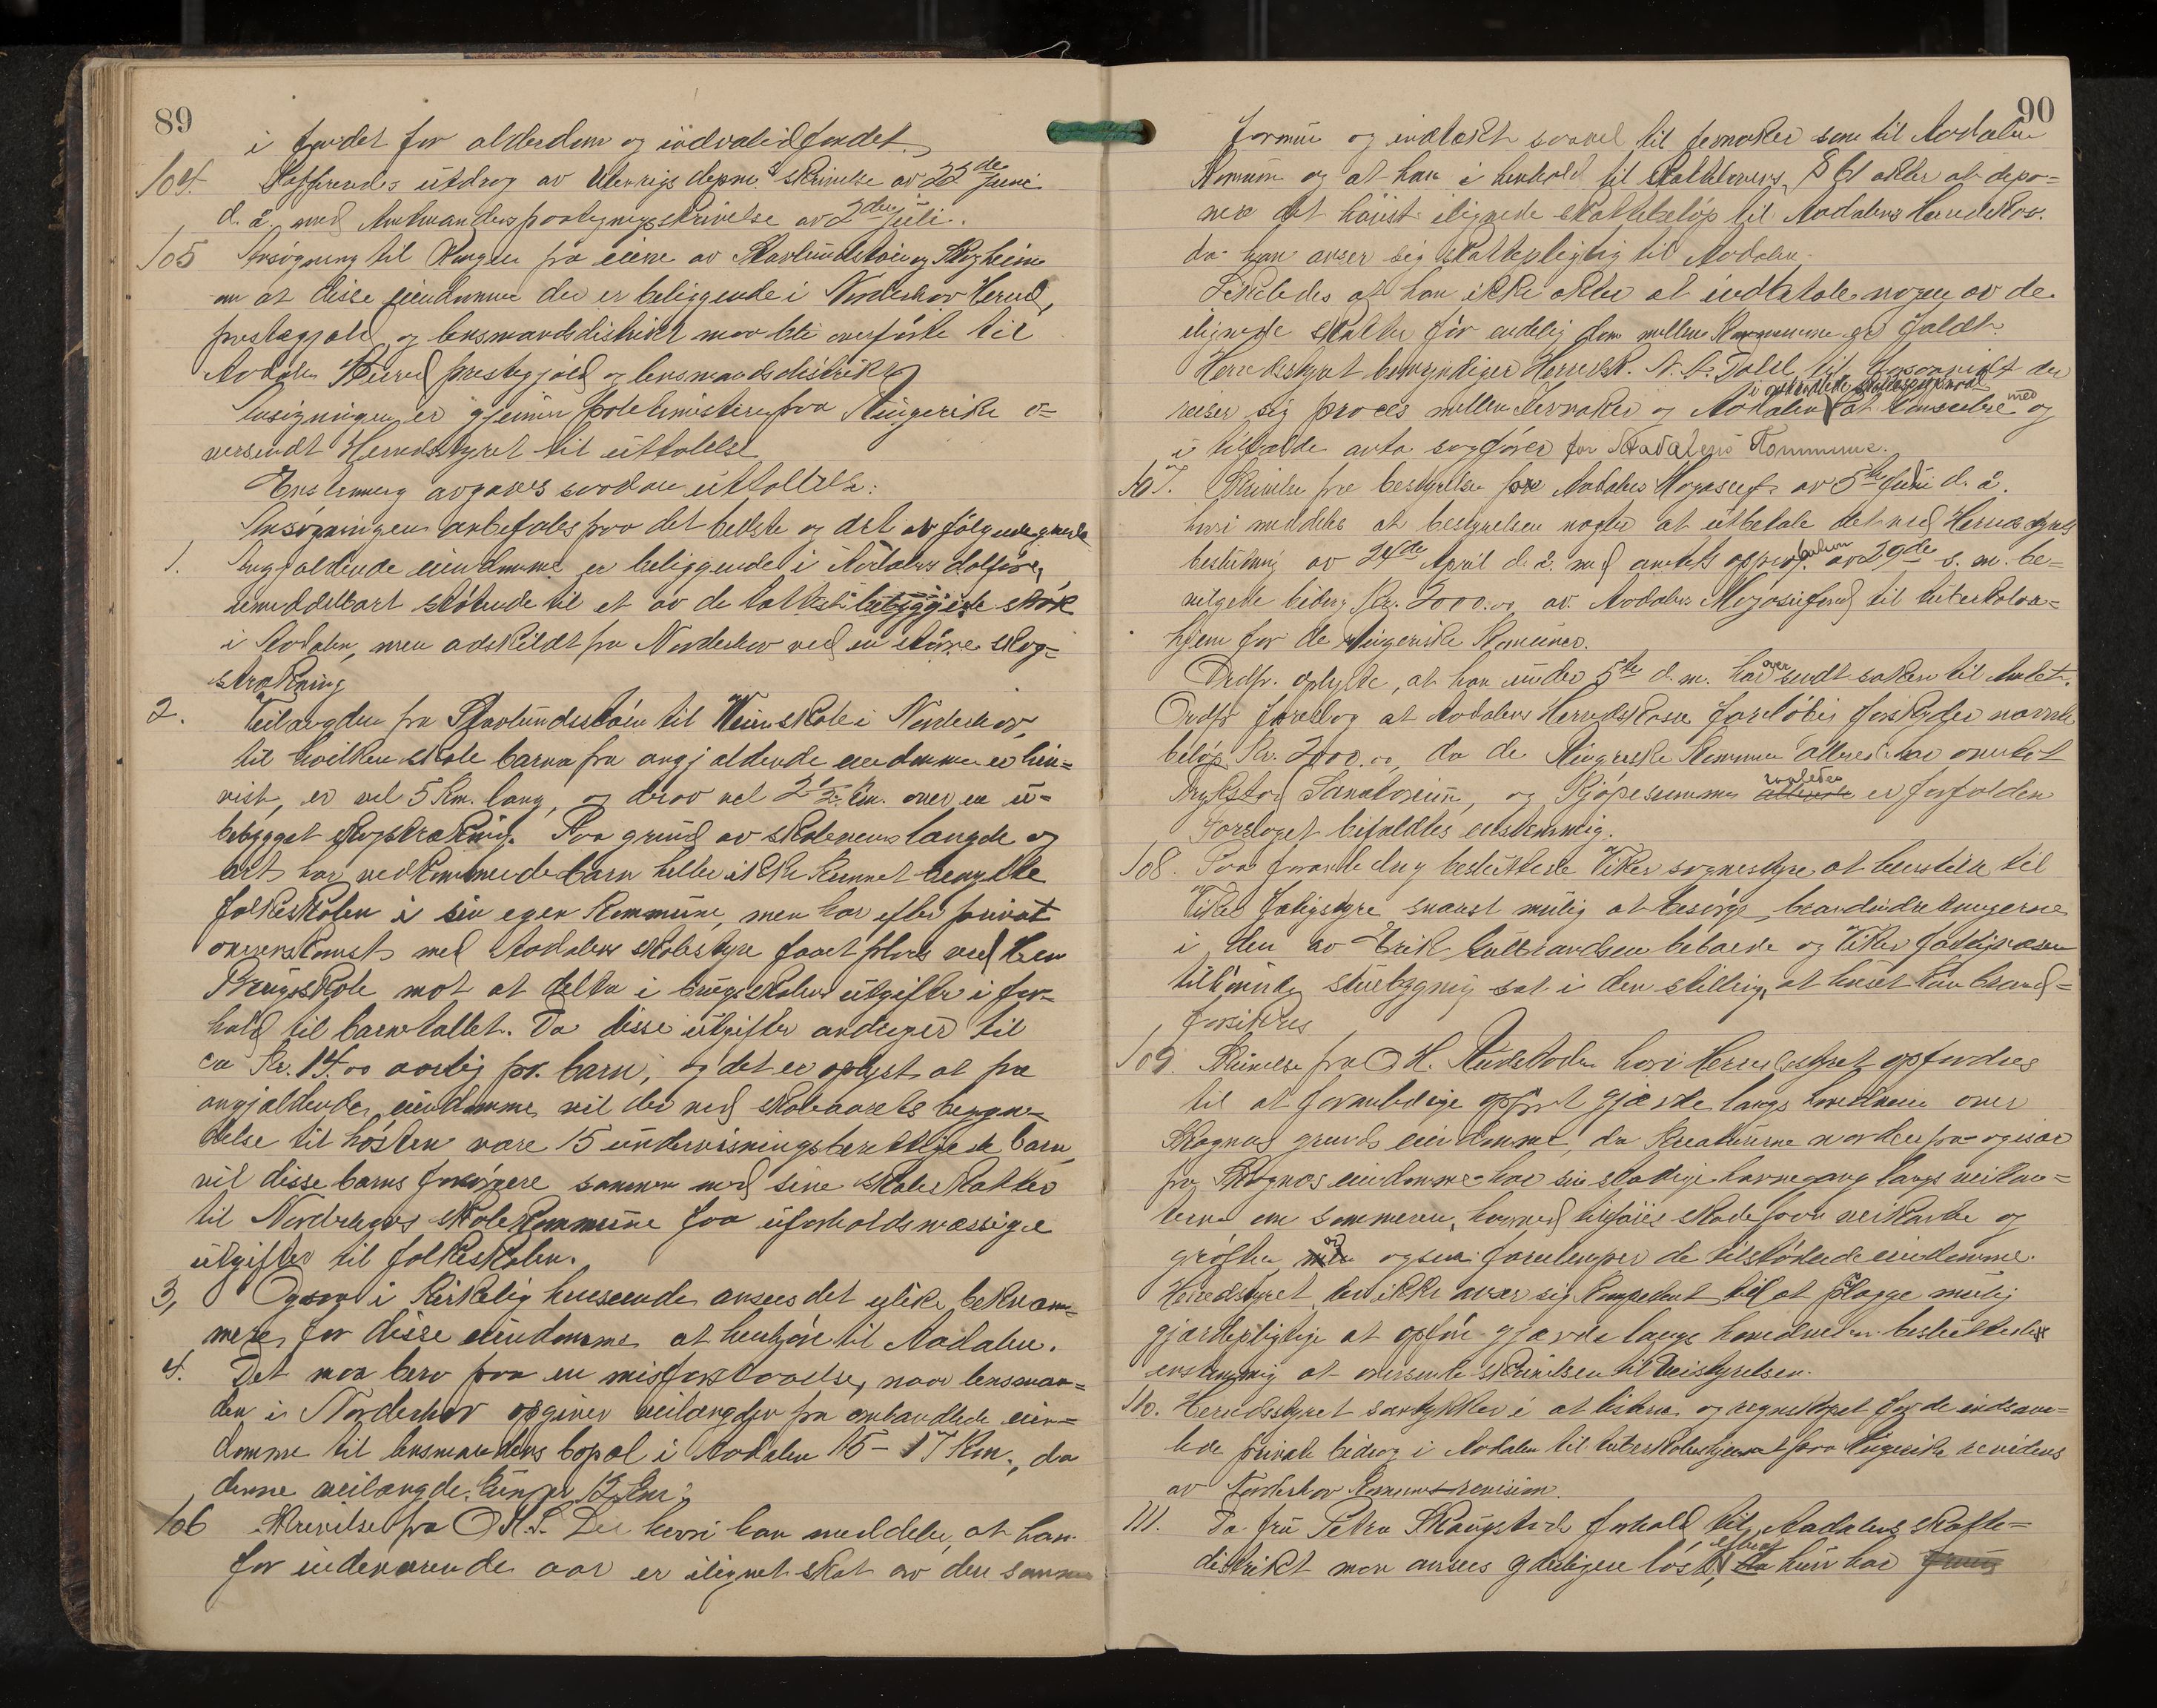 89
i fondet for alderdom og indvalidfondet.
104. utdrag av Utenrigsdepm.s skrivelse av 22de Juni
d. a. med Amtmandens paategningsskrivelse av 2den Juli.
105 Ansøgning til Kongen fra eiene av Stavlundstøien og Skogheim
om at disse eiendomme der er beliggende i Norderhov Herred,
prestegjæld og lensmandsdistrikt maa bli overførte til
Aadalen Herred prestegjæld og lensmandsdistrikt
Ansøgningen er gjennem politimesteren paa Ringerike o-
versendt Herredsstyret til uttalelse
Enstemmig avgaves saadan uttalelse:
Ansøgningen anbefales paa det bedste og det av følgende grunde
1. Angjældende eiendomme er beliggende i Aadalens dalføre,
umiddelbart støtende til et av de tættest bebyggede strøk
i Aadalen, men adskildt fra Norderhov ved en større skog-
strækning
2. Veilængden fra Stavlundsstøen til Veenskole i Norderhov,
til hvilken skole barna fra angjældende eiendomme er hen-
vist, er vel 5 Km. lang, og derav vel 2 1/2 Km. over en u-
bebygget skogstrækning. Paa grund av skoleveiens længde og
art har vedkommende barn heller ikke kunnet benytte
folkeskolen i sin egen kommune, men har efter privat
overenskomst med Aadalens skolestyre faaet plads ved Hen
Brugsskole mot at delta i brugsskolens utgifter i for-
hold til barnetallet. Da disse utgifter andrager til
ca Kr. 14.00 aarlig pr. barn, og det er oplyst at fra
angjældende eiendomme vil der ved skoleaarets begyn-
delse til høsten være 15 undervisningsberettigede barn,
vil disse barns forsørgere sammen med sine skoleskatter
til Norderhovs skolekommune faa uforholdsmæssige
utgifter til folkeskolen.
3, Ogsaa i kirkelig henseende ansees det like bekvem-
mere for disse eiendomme at henhøre til Aadalen.
4. Det maa bero paa en misforstaaelse, naar lensman-
den i Norderhov opgiver veilængden fra ombandlede eien-
domme til lensmandens bopæl i Aadalen 15 - 17 Km., da
denne veilængde kun er 12 Km.
106 Skrivelse fra O. A. L. hvori han meddeler, at han
for indeværende aar er ilignet skat av den samme
90
formue og indtækt saavel til Jevnaker som til Aadalen
Komune og at han i henhold til Skatteloven § 61 akter at depo-
nere det høiist ilignede skattebeløp til Aadalens Herredskas.
da han anser sig skattepligtig til Aadalen.
Likeledes at han ikke akter at indbetale nogen av de
ilignede skatter før endelig dom mellem Komunerne er faldt.
Herredsstyret bemyndiger Herredsk. A. A. Dahl til der
reiser sig proces mellem Jevnaker og Aadalen i omhandlede skattespørsmaal at konferere med og
i tilfælde anta sagfører for Aadalens Kommune.
107. Skrivelse fra bestyrelsen for Aadalens Mogasinf. av 5te Juni d. a.
hvori meddeles at bestyrelsen nægter at utbetale det ved Herredsstyrets
beslutning av 24de April d. a. med amtets approbation av 29de s. m. be-
vilgede bidrag Kr. 2000.00 av Aadalens Mogasinfond til tuberkolose-
hjem for de Ringeriske Komuner.
Ordfr. oplyste, at han under 5te d. m. har oversendt saken til Amtet.
Ordfr foreslog at Aadalens Herredskasse foreløbig forskyder nævnte
beløp Kr. 2000.00 da de Ringeriske Kommuner allerede har overtat
Sanatorium, og Kjøpesummen saaledes er forfalden
Forslaget bifaldtes enstemmig.
108. Paa foranledning besluttede Vikers sognestyre at henstille til
Viker fatigstyre snarest mulig at besørge brandindretningerne
i den av Erik Gulbrandsen beboede og Viker fattigvæsen
tilhørende stuebygning sat i den stilling, at huset kan brand-
forsikres
109. Skrivelse fra O H. hvori Herredsstyret opfordres
til at foranledige opført gjærde langs hovedveien over
Skagnes grunds eiendomme, da kreaturene nordenfra ogsaa
fra Skagnes eiendomme har sin stadige havnegang langs veikan-
terne om sommeren, hvorved tilføies skade paa veikanter og
grøfter og ogsaa forulemper de tilstødende eiendomme.
Herredsstyret der ikke anser sig kompetent til at paalægge mulig
gjærdepligtige at opføre gjærde langs hovedveien besluttedes
enstemmig at oversende skrivelsen til Veistyrelsen.
110. Herredsstyret samtykker i at listerne og regnskapet for de indsam-
lede private bidrag i Aadalen til tuberkolosehjemmet paa Ringerike revideres
av Norderhov Komunerevision.
111. Da fru Petra Skaugstad forhold til Aadalens skatte-
distrikt maa ansees yderligere løst, efterat hun har